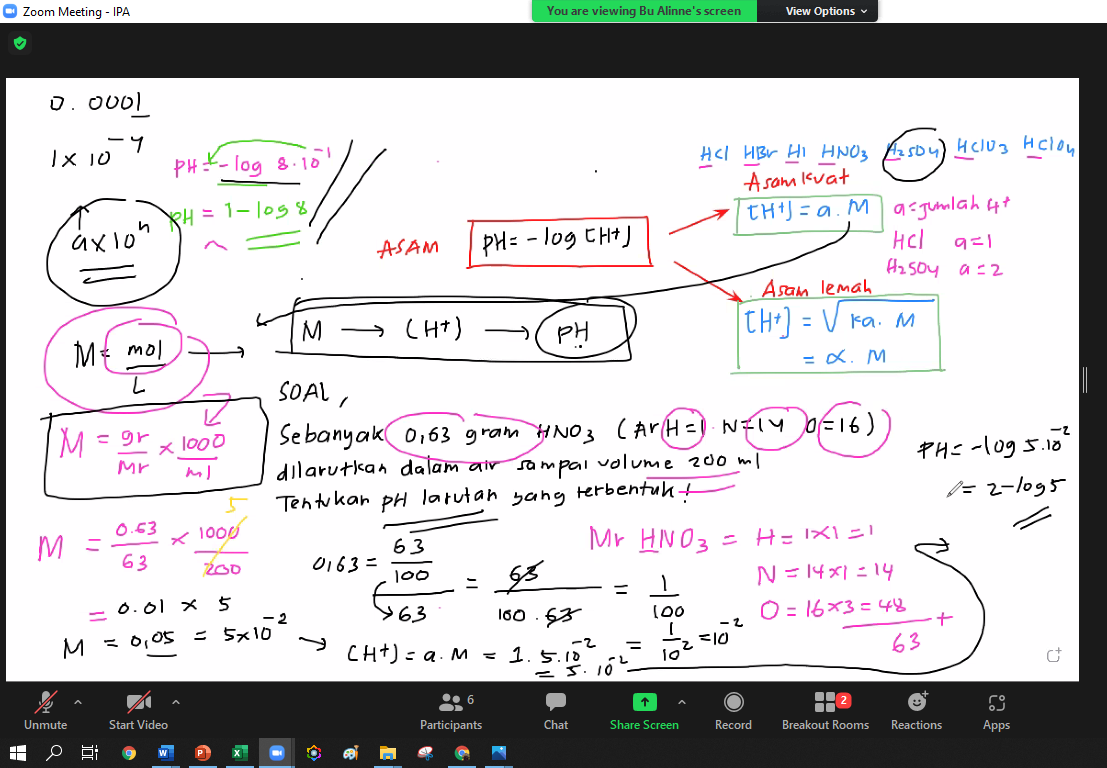 Zoom Meeting - IPA
You are viewing Bu Alinne's screen
View Options
0.0001
1 x 10⁻⁴
PH = -log 8.10⁻¹
PH = 1-log 8
a x 10ⁿ
HCl HBr HI HNO3 H2SO4 HClO3 HClO4
Asam kuat
[H+] = a. M
a = jumlah H+
HCl a=1
H2SO4 a=2
ASAM
PH = -log [H+]
Asam lemah
[H+] = √ka. M
= α. M
M → (H+) → PH
M = mol
L
M = gr x 1000
Mr ml
SOAL,
Sebanyak 0,63 gram HNO3 (Ar H=1 N=14 O=16)
dilarutkan dalam air sampai volume 200 ml
Tentukan pH larutan yang terbentuk!
PH = -log 5.10⁻²
= 2-log5
M = 0.63 x 1000
63 200
5
= 0.01 x 5
M = 0,05 = 5x10⁻²
0,63 = 63
100
63
= 63
100.63
= 1
100
= 1 = 10⁻²
10²
(H+) = a.M = 1. 5.10⁻²
= 5.10⁻²
Mr HNO3 = H = 1x1 = 1
N = 14x1 = 14
O = 16x3 = 48
+
63
Unmute
Start Video
Participants
6
Chat
Share Screen
Record
Breakout Rooms
2
Reactions
Apps